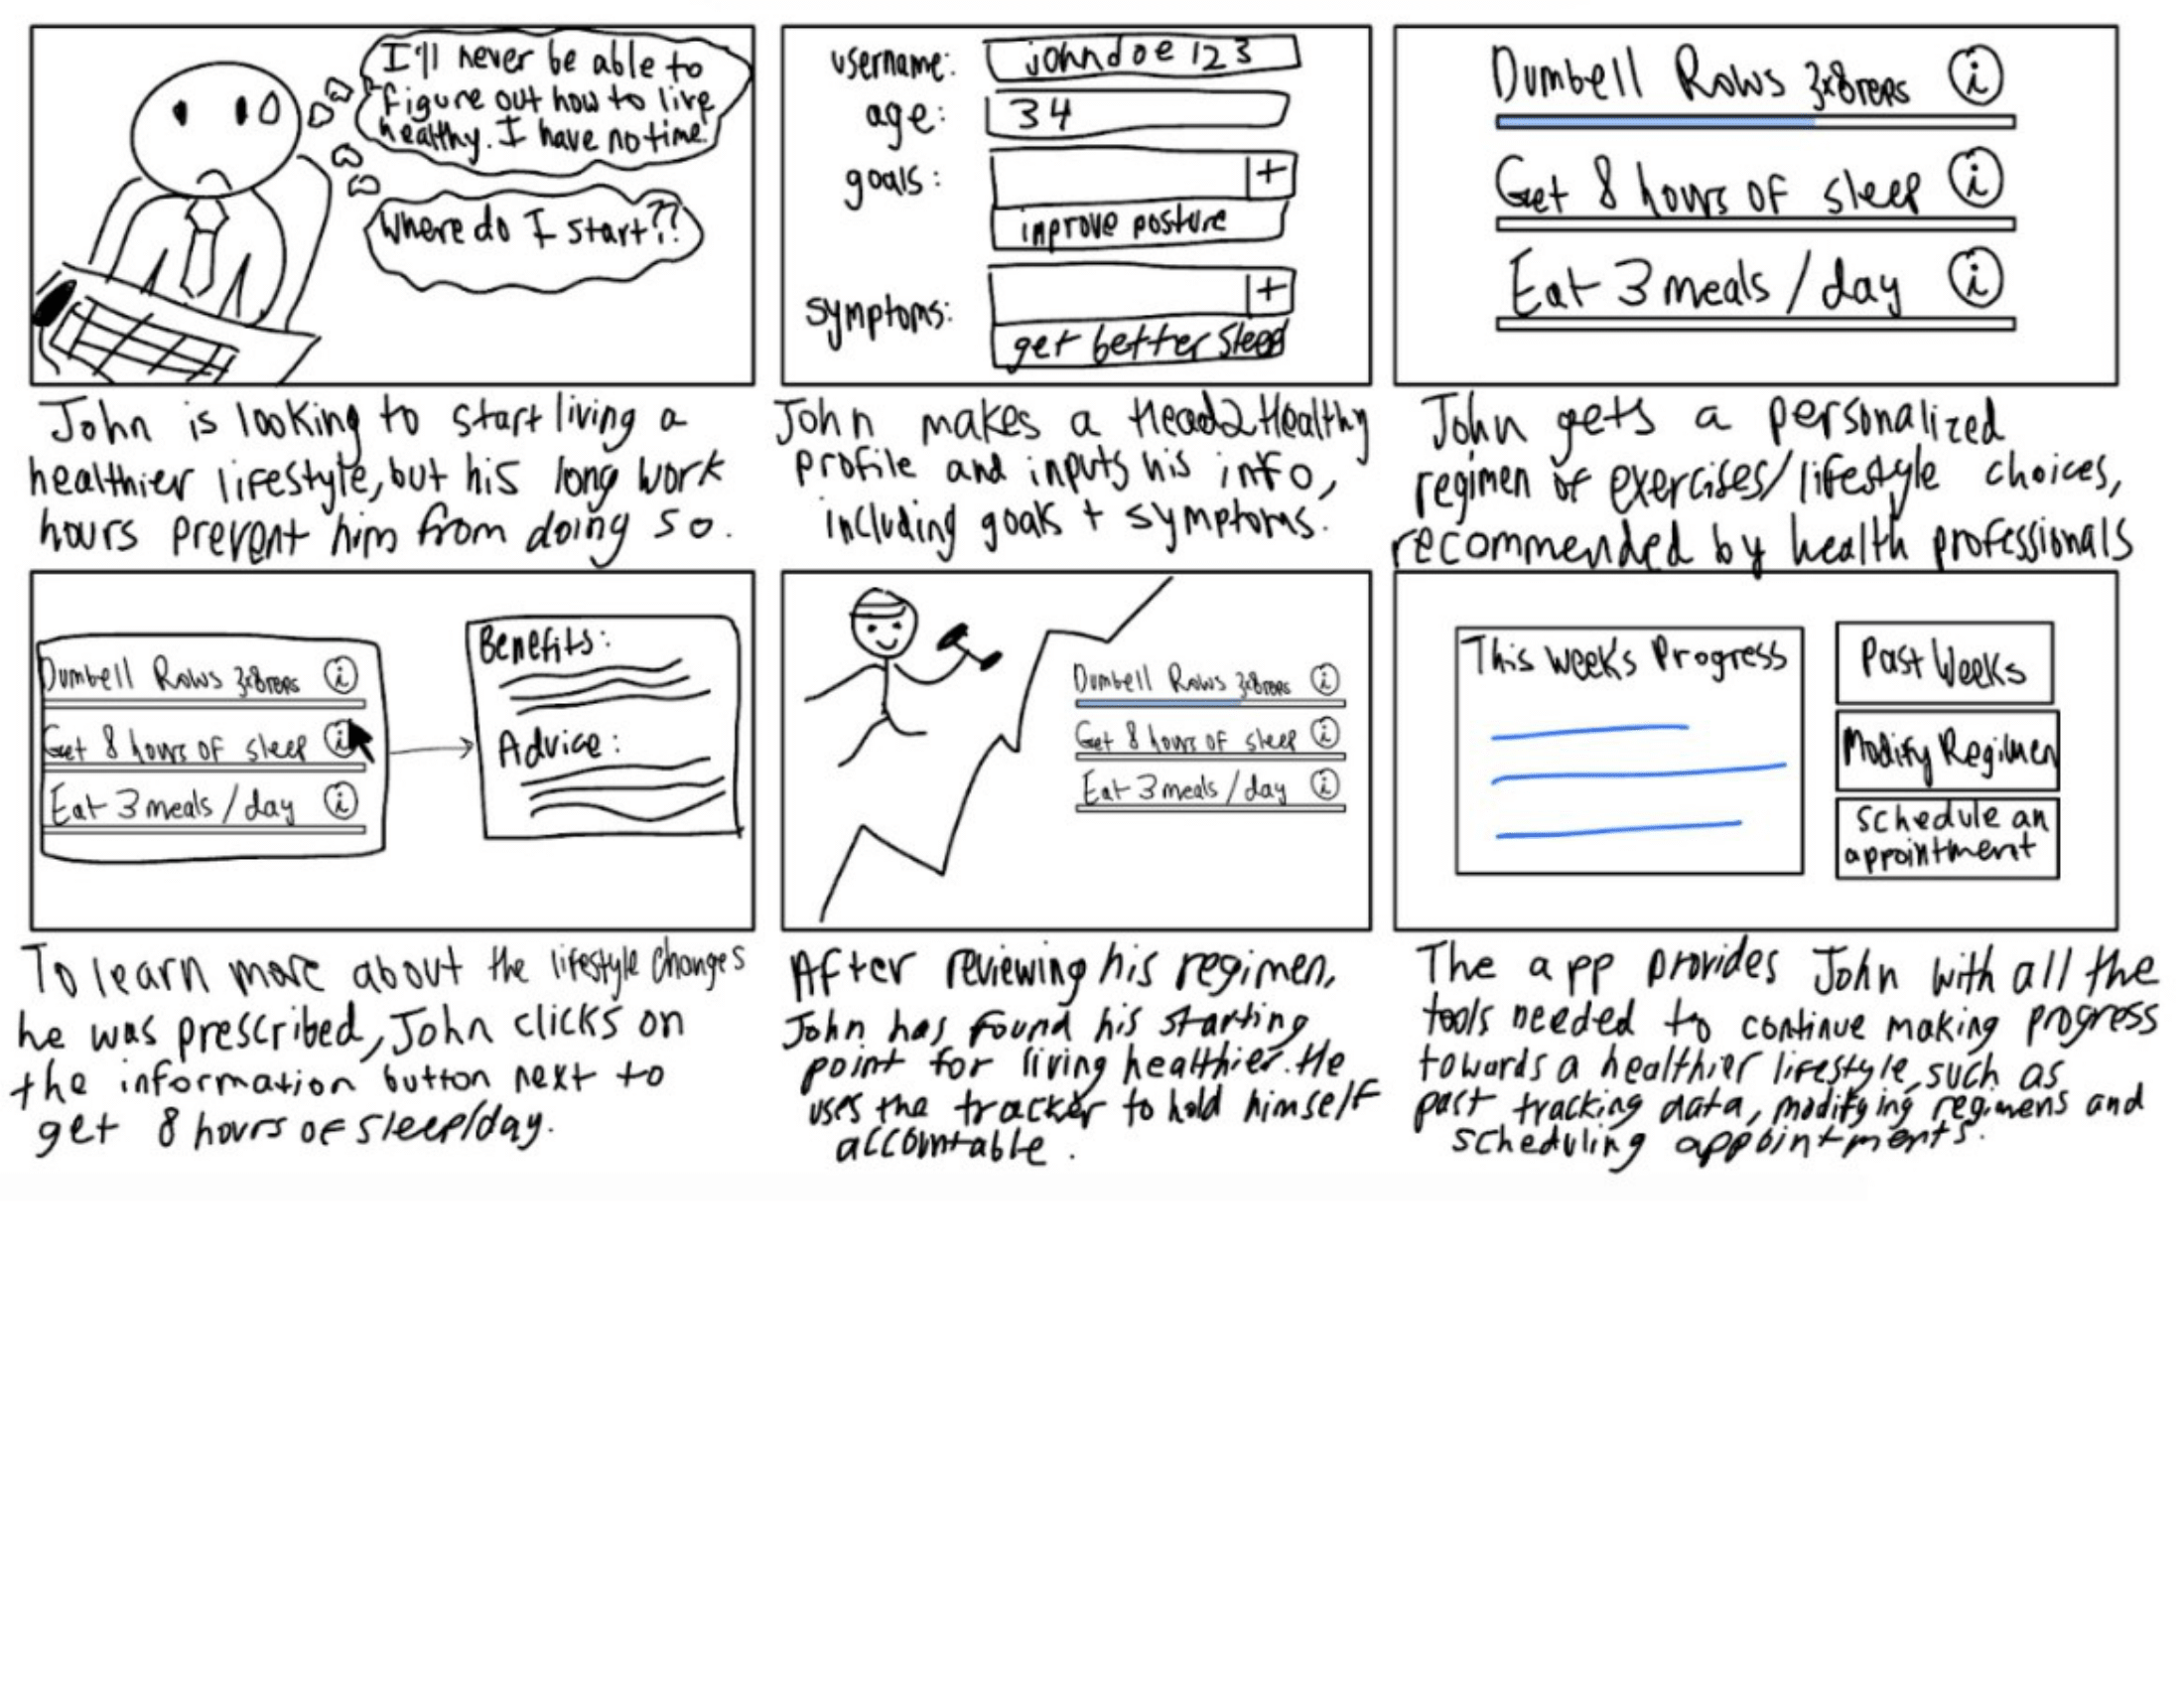 I'll never be able to
figure out how to live
healthy. I have no time.
Where do I start??
John is looking to start living a
healthier lifestyle, but his long work
hours prevent him from doing so.
username: johndoe123
age: 34
goals: +
improve posture
symptoms: +
get better sleep
John makes a Head2Healthy
profile and inputs his info,
including goals + symptoms.
Dumbell Rows 3x8reps i
Get 8 hours of sleep i
Eat 3 meals / day i
John gets a personalized
regimen of exercises/lifestyle choices,
recommended by health professionals
Dumbell Rows 3x8reps i
Get 8 hours of sleep i
Eat 3 meals / day i
Benefits:
Advice:
To learn more about the lifestyle changes
he was prescribed, John clicks on
the information button next to
get 8 hours of sleep/day.
Dumbell Rows 3x8reps i
Get 8 hours of sleep i
Eat 3 meals / day i
After reviewing his regimen,
John has found his starting
point for living healthier. He
uses the tracker to hold himself
accountable.
This weeks Progress
Past Weeks
Modify Regimen
schedule an
appointment
The app provides John with all the
tools needed to continue making progress
towards a healthier lifestyle, such as
past tracking data, modifying regimens and
scheduling appointments.